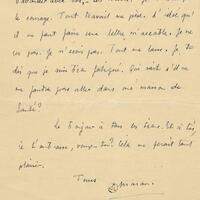 le courage. Tout travail me pèse. L'idée qu'il
me faut faire une lettre m'accable. Je ne
lis pas. Je n'écris pas. Tout me lasse. Je te
dis que je suis bien fatigué. Qui sait s'il ne
me faudra pas aller dans une maison de
Santé?
Le bonjour à tous les tiens. Et à toi,
je t'embrasse, veux-tu? Cela me ferait tant
plaisir.
Maran